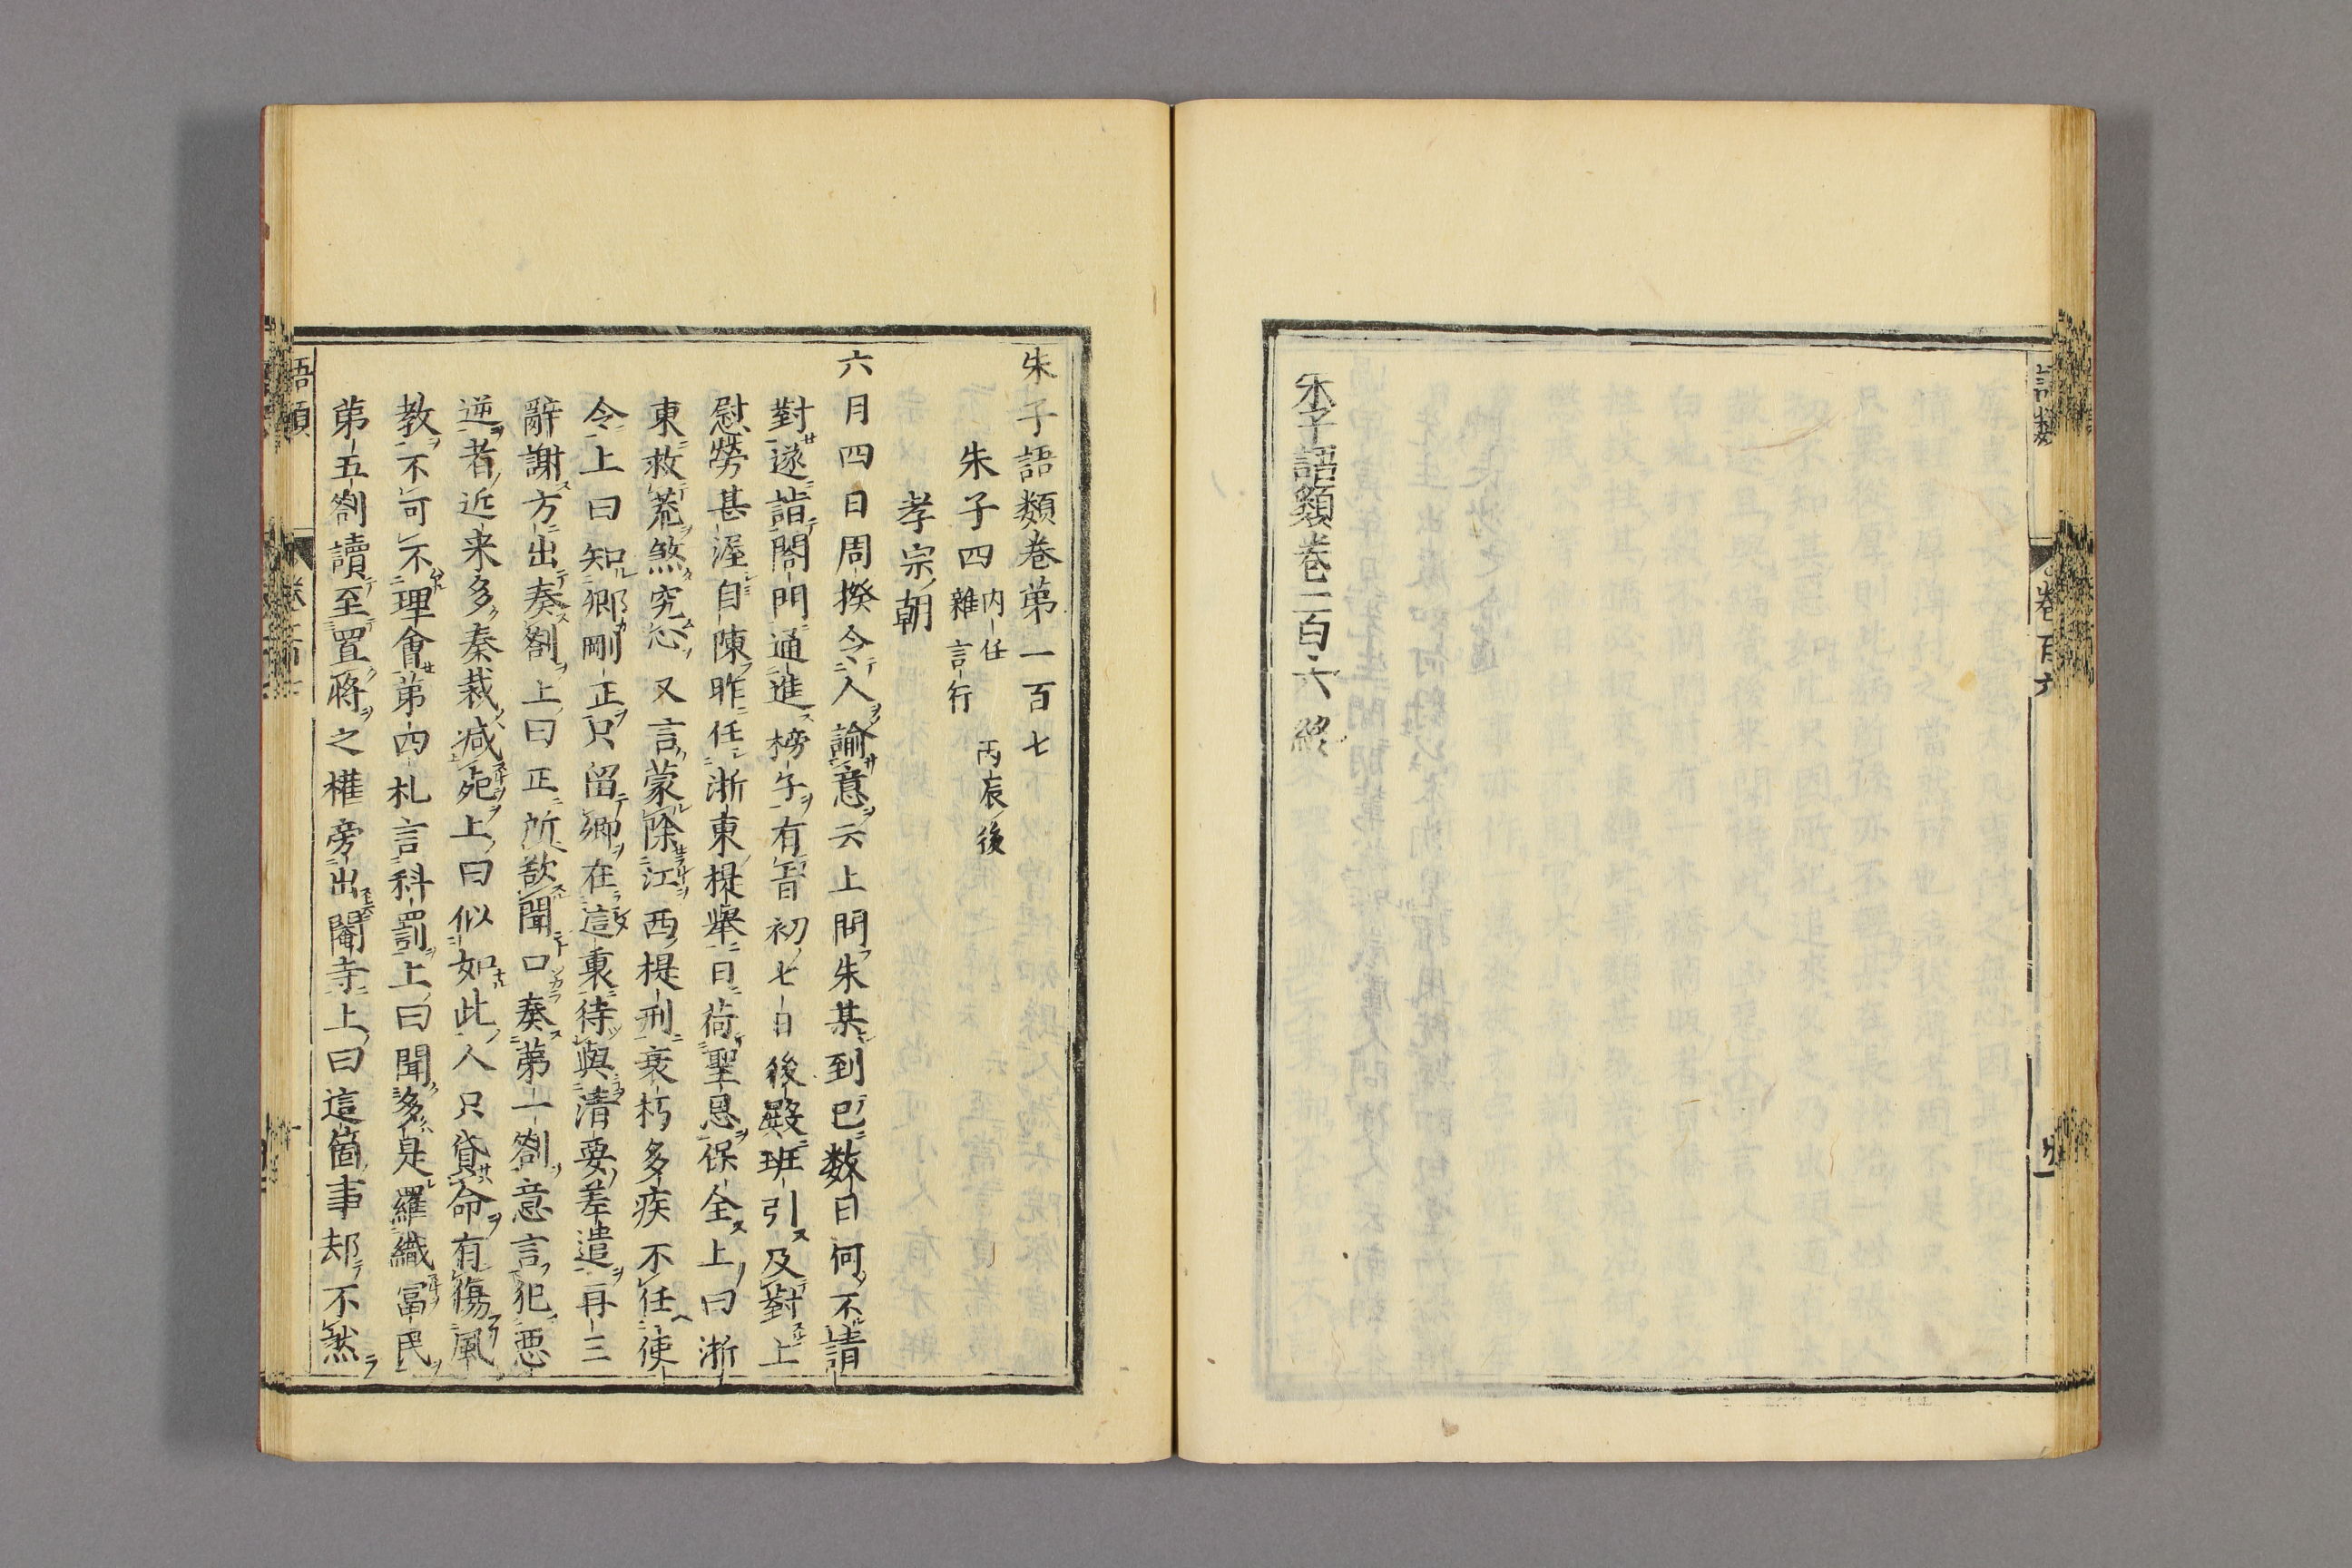 語類
卷百六
朱子語類卷一百六終
朱子語類卷第一百七
朱子四 内任 丙辰後
雜言行
孝宗朝
六月四日周揆令人諭意云上問朱某到已数日何不請
對遂詣閤門通進榜子有旨初七日後殿班引及對上
慰勞甚渥自陳昨任浙東提舉日荷聖恩保全上曰浙
東救荒煞究心又言蒙除江西提刑衰朽多疾不任使
令上曰知卿剛正只留卿在這裏待與清要差遣再三
辭謝方出奏劄上曰正所欲聞口奏第一劄意言犯悪
逆者近来多奏裁减死上曰似如此人只貸命有傷風
教不可不理會第四札言科罰上曰聞多是羅織冨民
第五劄讀至置將之權旁出閹寺上曰這箇事却不然
語類